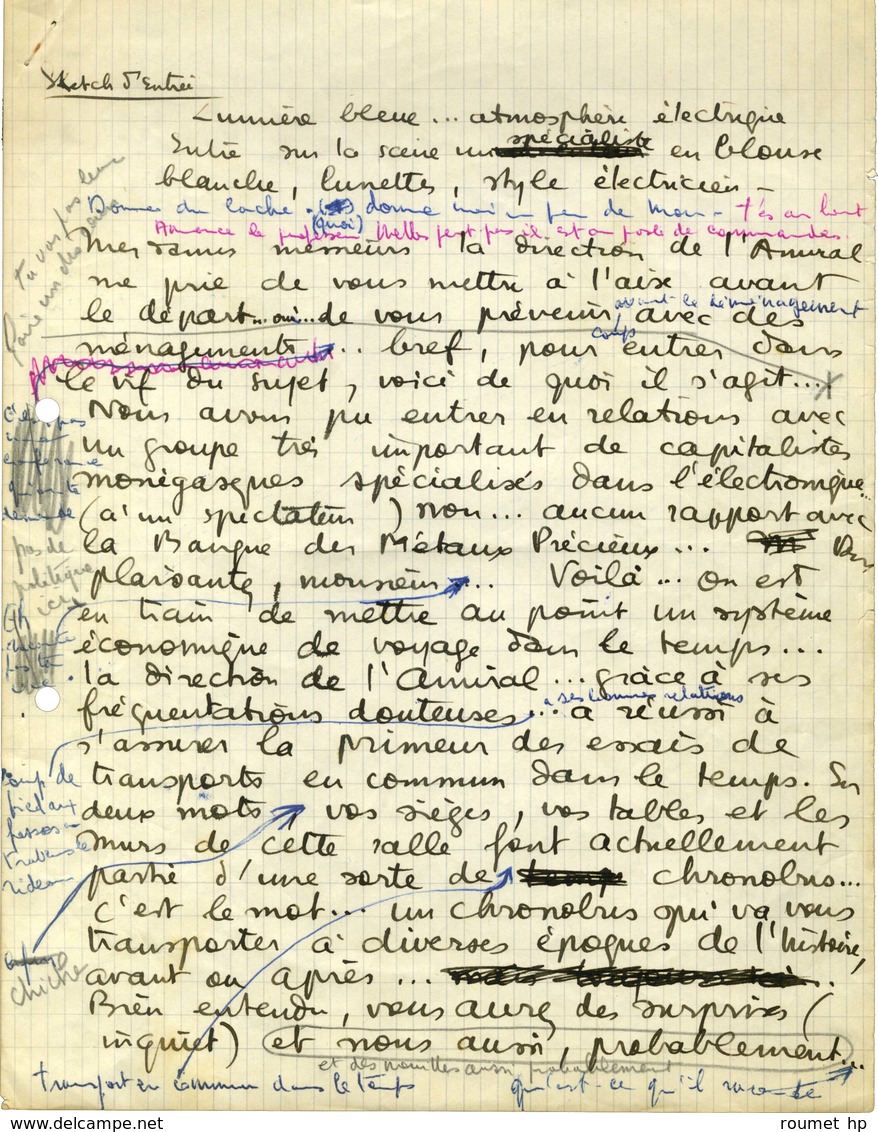 Sketch d'Entrée
Lumière bleue... atmosphère électrique
Entre sur la scène un spécialiste en blouse
blanche, lunettes, style électricien -
Donne du lâche donne moi un peu de mou - t'es au bout
Annonce le professeur est au poste de commandes
Mesdames messieurs la direction de l'Amiral
me prie de vous mettre à l'aise avant
le départ... oui... de vous prévenir, avec des
avant le déménagement
ménagements... bref, pour entrer dans
coups
le vif du sujet, voici de quoi il s'agit...
Nous avons pu entrer en relations avec
un groupe très important de capitalistes
monégasques spécialisés dans l'électronique...
(à un spectateur) non... aucun rapport avec
la Banque des Métaux Précieux...
plaisantez, monsieur... Voilà... on est
en train de mettre au point un système
économique de voyage dans le temps...
la direction de l'Amiral... grâce à ses
à ses bonnes relations
fréquentations douteuses... a réussi à
s'assurer la primeur des essais de
transports en commun dans le temps. En
deux mots vos sièges, vos tables et les
murs de cette salle font actuellement
partie d'une sorte de chronobus...
c'est le mot... un chronobus qui va vous
transporter à diverses époques de l'histoire,
avant ou après...
Bien entendu, vous aurez des surprises (
inquiet) et nous aussi, probablement...
et des nouilles aussi, probablement
transport en commun dans le temps
qu'est-ce qu'il raconte
Tu vas pas leur
faire un discours
c'est pas
une
conférence
pas de
politique
ici
coup de
pied aux
fesses
à travers le
rideau
chiche
roumet hp